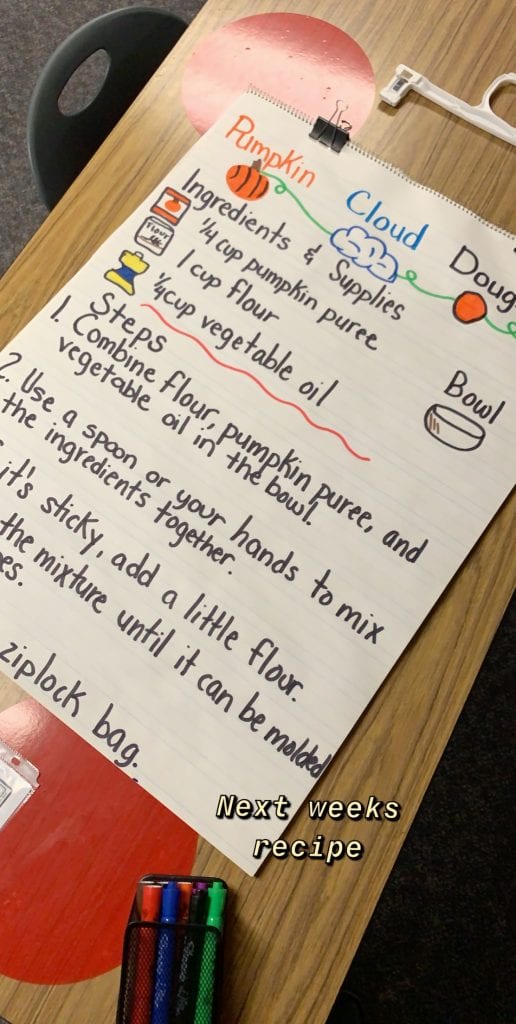 Pumpkin Cloud Doug
Ingredients & Supplies
1/4 cup pumpkin puree
FLOUR
1 cup flour
1/4 cup vegetable oil
Bowl
Steps
1. Combine flour, pumpkin puree, and
vegetable oil in the bowl.
2. Use a spoon or your hands to mix
the ingredients together.
it's sticky, add a little flour.
the mixture until it can be molded
es.
ziplock bag.
Next weeks
recipe